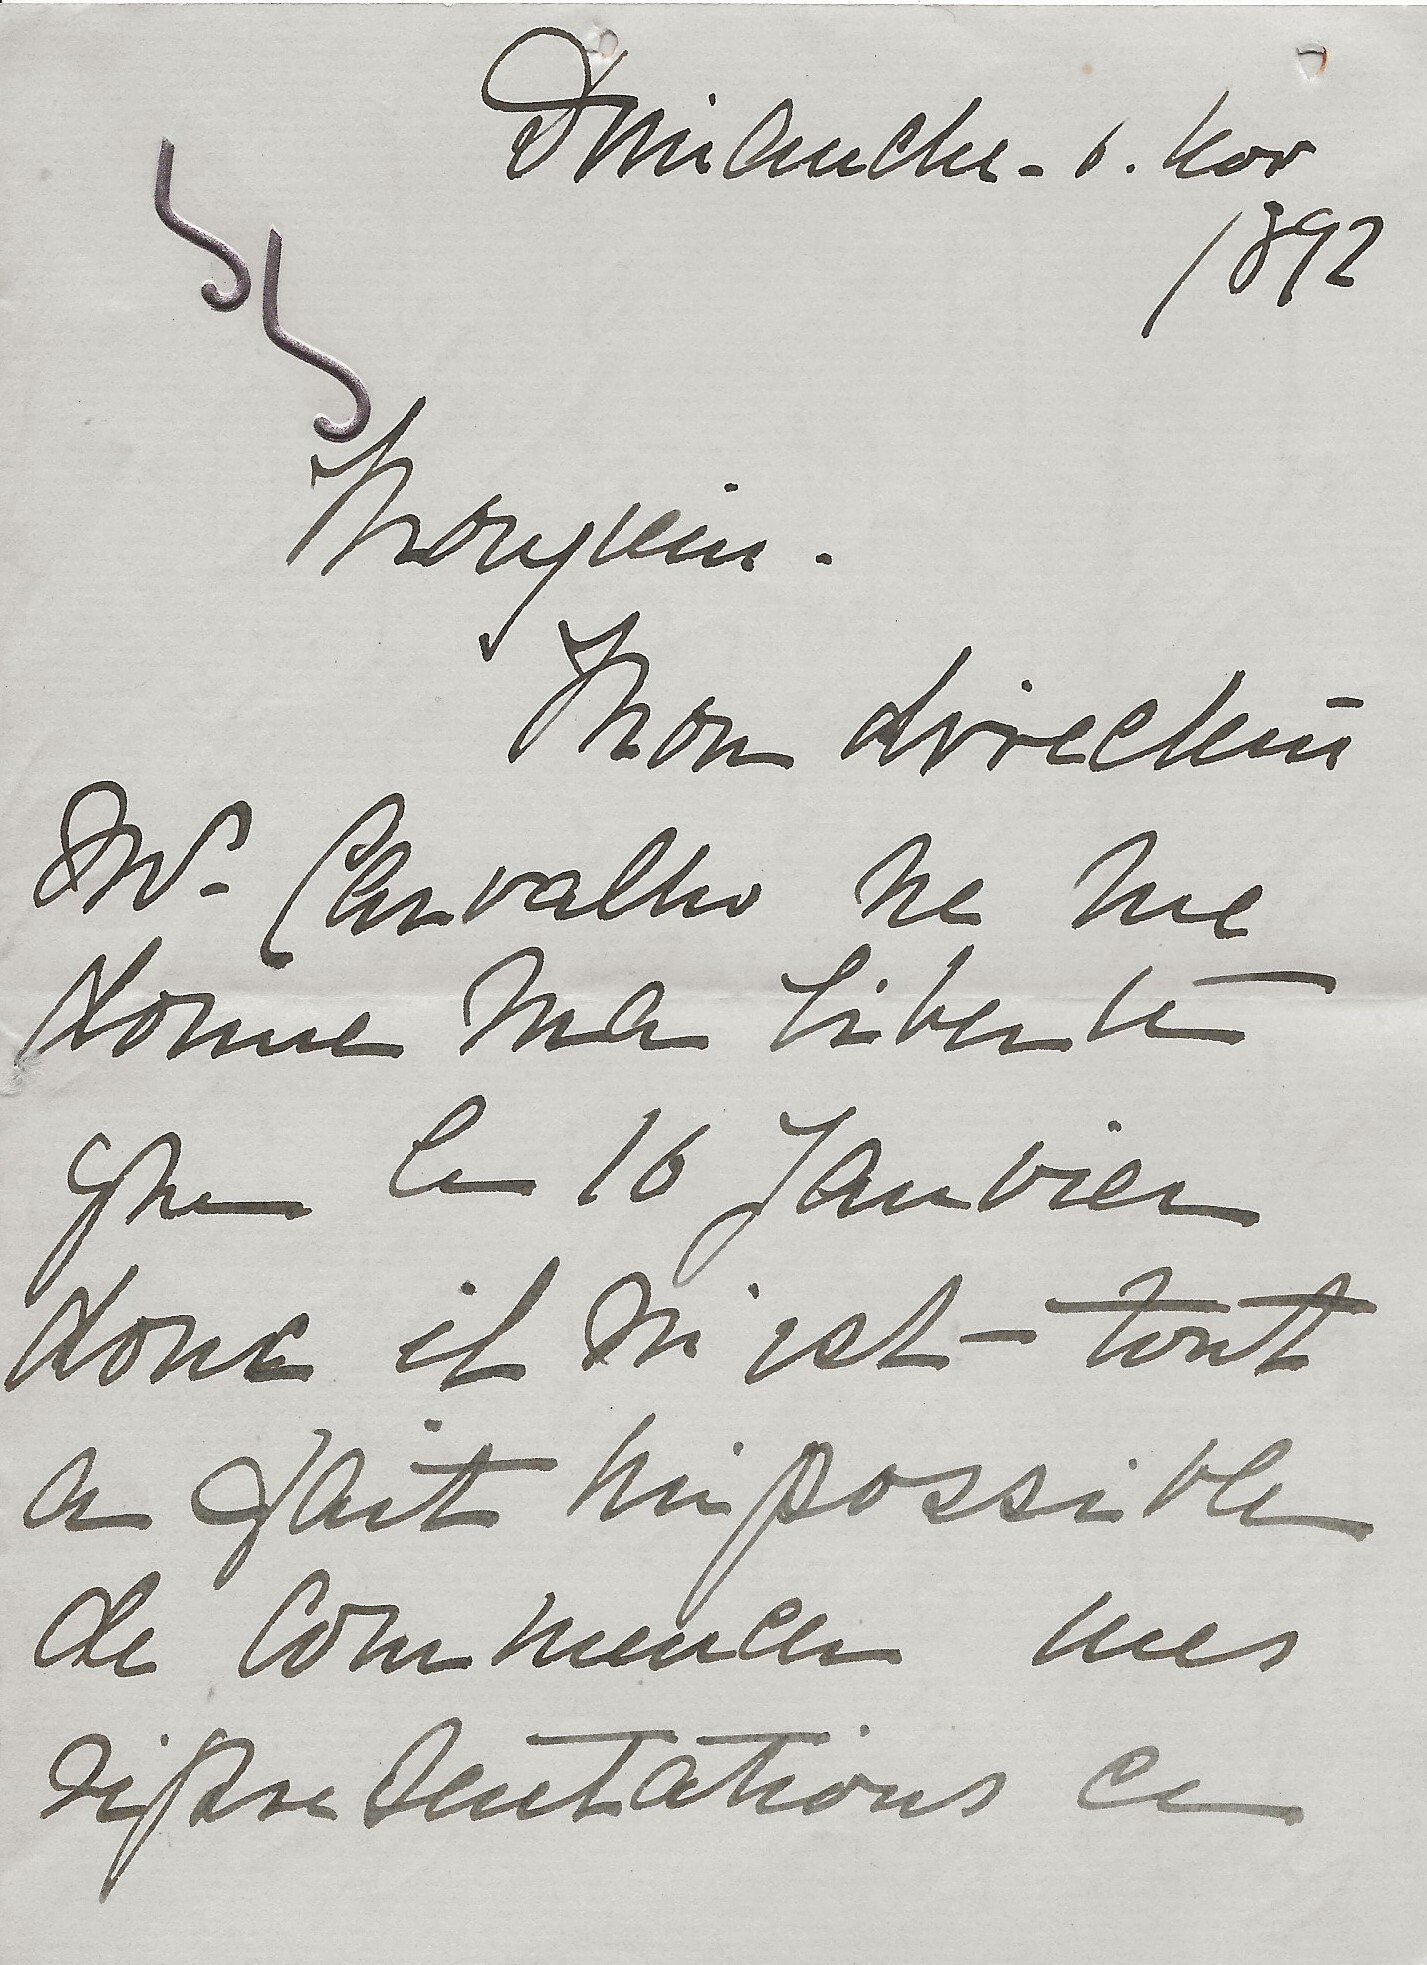 Dimanche - 6. Nov
1892
Monsieur.
Mon directeur
Mr. Carvalho ne me
donne ma liberté
que le 16 Janvier
donc il m'est tout
a fait impossible
de commencer mes
représentations ce